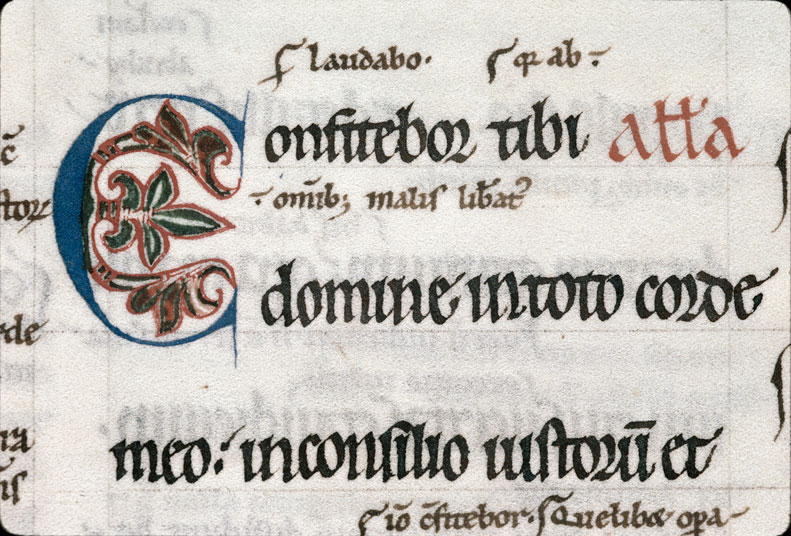 ſ laudabo. ſ qꝛ ab.
Confitebor tibi all'a
oīnib; malis lib̄at᷑
domine in toto corde
meo: in conſilio iuſtorū et
ſ iō c̄fitebor. ſ Quelibꝫ opa-